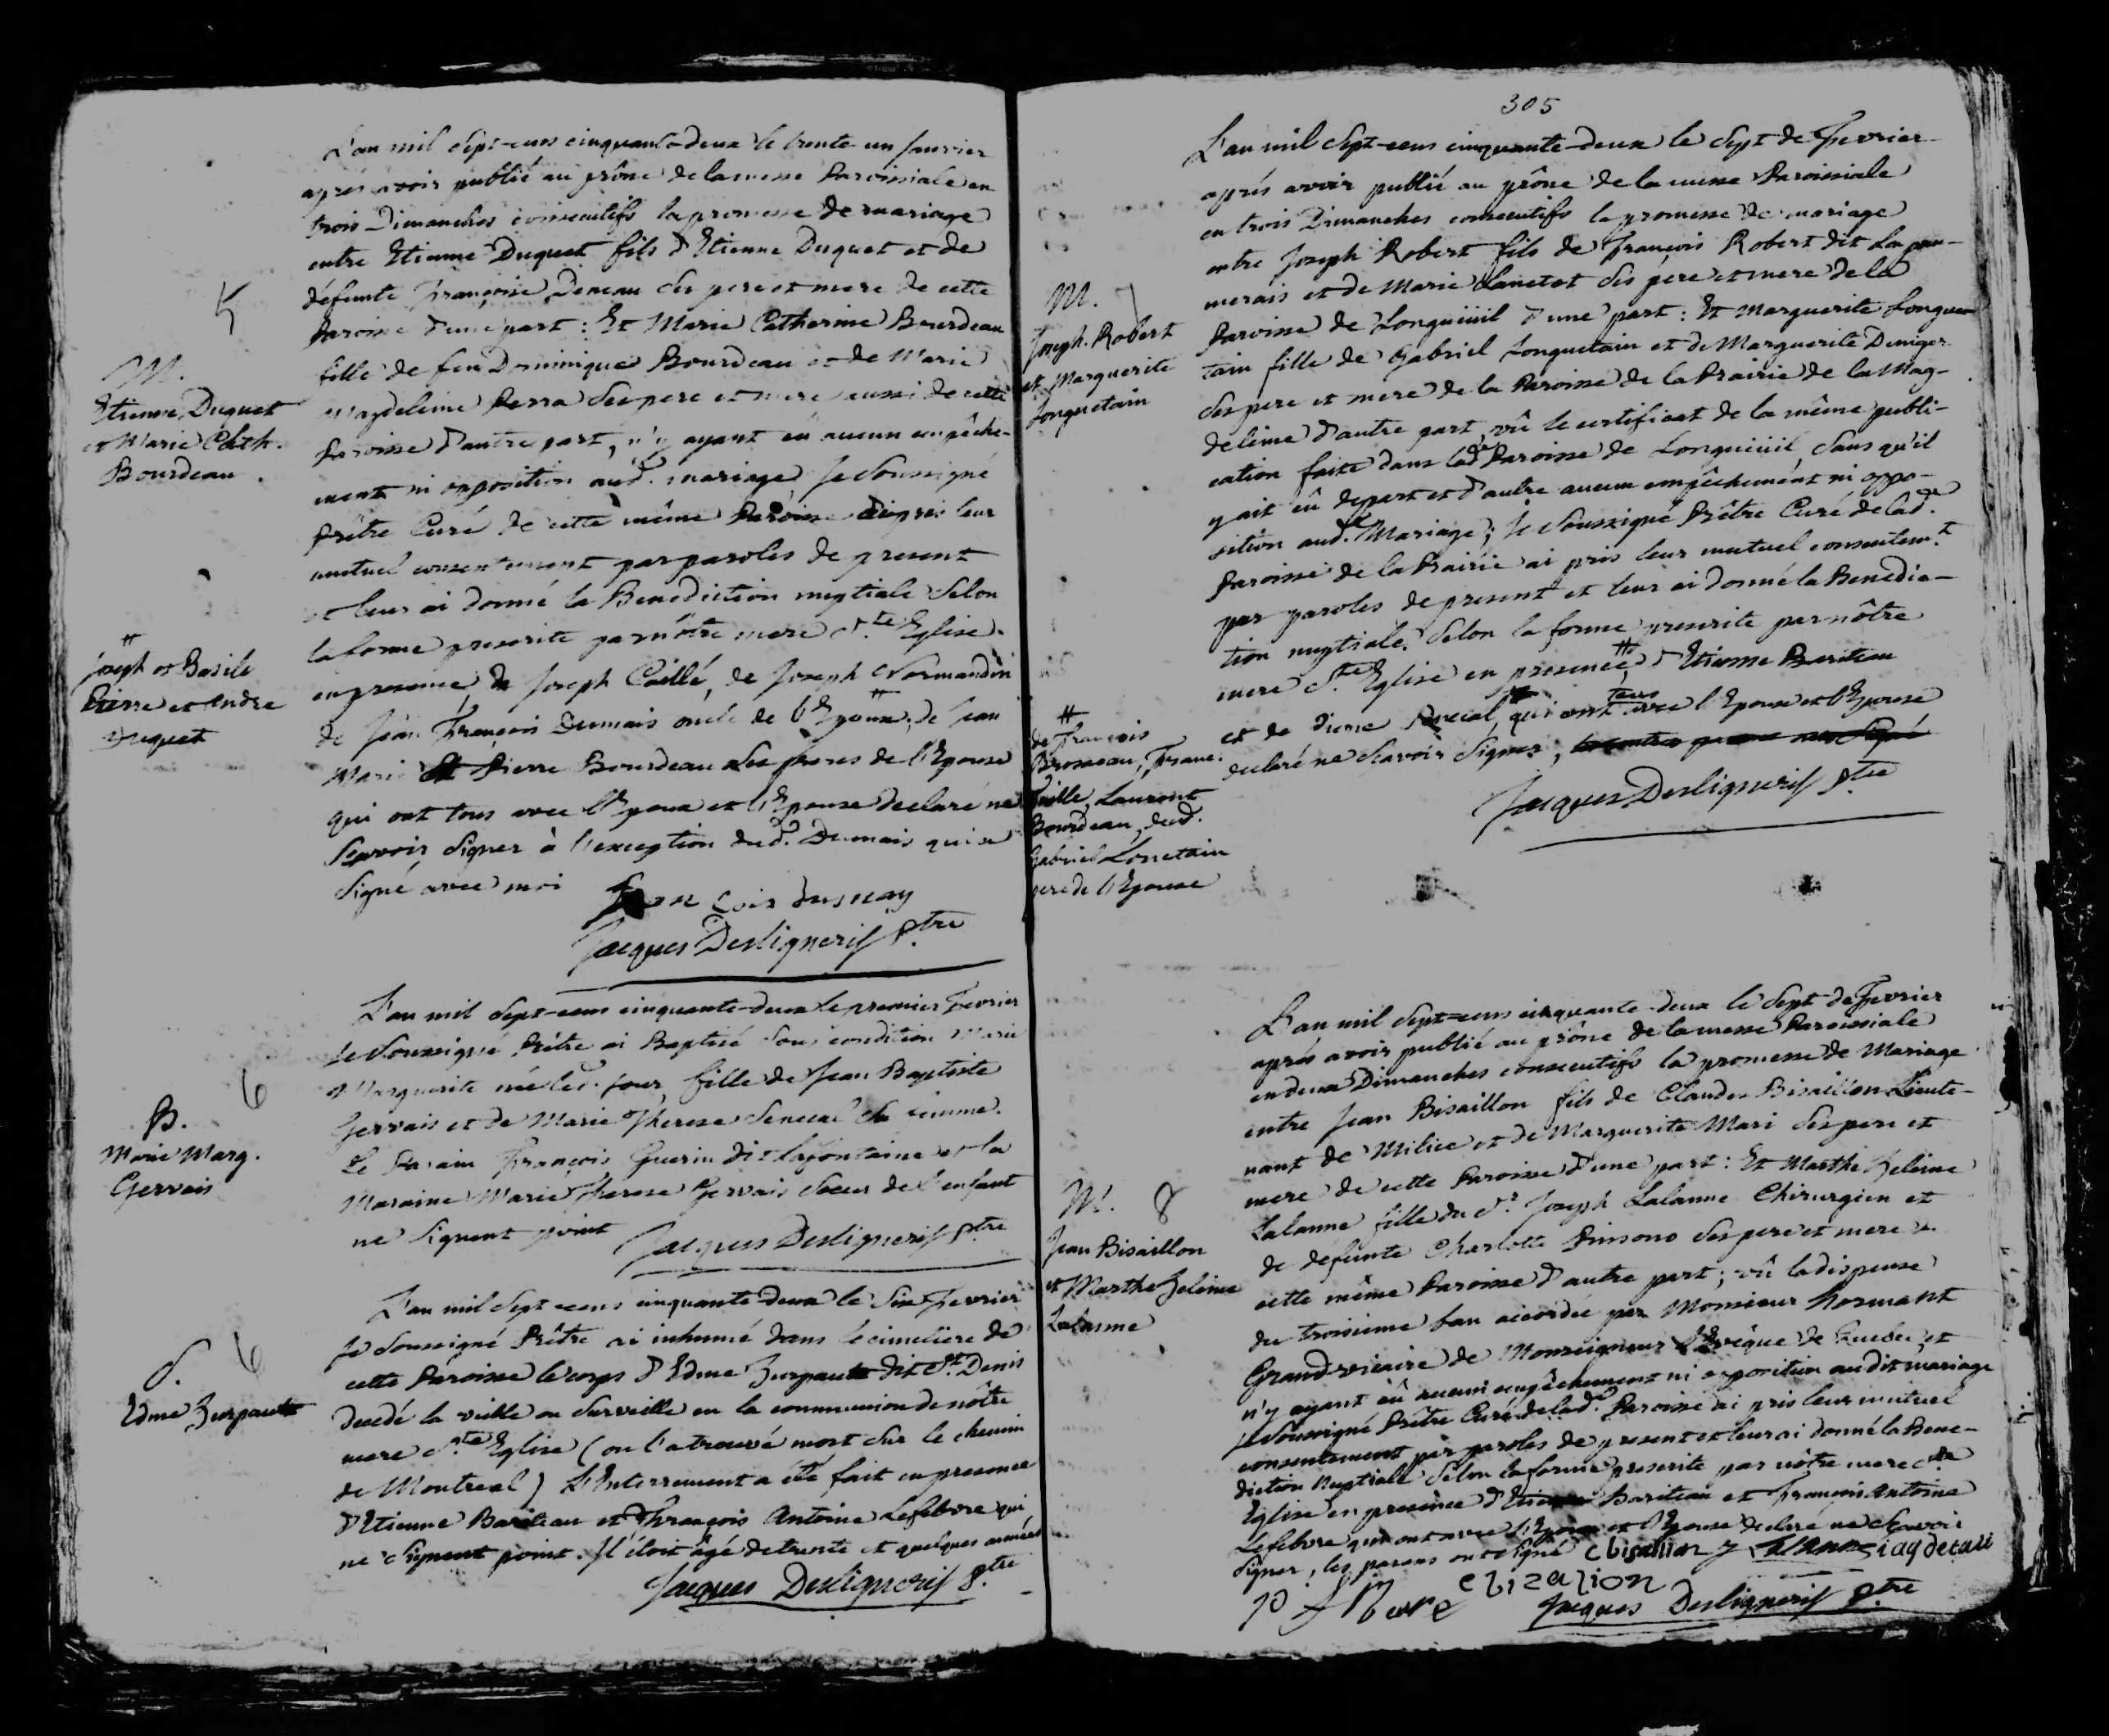 5
M.
Etienne Duquet
et Marie Cath.
Bourdeau.
L'an mil sept-cens cinquante-deux le trente un Janvier
aprés avoir publié au prône de la messe Paroissiale en
trois Dimanches consecutifs la promesse de mariage
entre Etienne Duquet fils d'Etienne Duquet et de
défunte Françoise Deneau ses pere et mere de cette
Paroisse d'une part : Et Marie Catherine Bourdeau
fille de feu Dominique Bourdeau et de Marie
Magdeleine Perra ses pere et mere aussi de cette
Paroisse d'autre part, n'y ayant eu aucun empêche-
ment ni opposition aud. mariage Je soussigné
Prêtre Curé de cette même Paroisse ai pris leur
mutuel consentement par paroles de present
et leur ai donné la Benediction nuptiale selon
la forme prescrite par nôtre mere Ste Eglise
en presence de Joseph Caillé, de Joseph Normandin
de Jean François Dumais oncle de l'Epoux, # de Jean
Mari et Pierre Bourdeau les freres de l'Epouse
qui ont tous avec l'Epoux et l'Epouse declaré ne
Sçavoir signer à l'exception dud. Dumais qui a
signé avec moi
# Joseph et Basile
Pierre et Andre
Duquet
francois dumay
Jacques Desligneris ptre
B. 6
Marie Marg.
Gervais
L'an mil sept-cens cinquante-deux le premier Fevrier
Je soussigné Prêtre ai Baptisé sous condition Marie
Marguerite née led. jour, fille de Jean Baptiste
Gervais et de Marie Therese Senecal sa femme.
Le Parain François Guerin dit Lafontaine et la
Maraine Marie Therese Gervais soeur de l'enfant
ne signent point
Jacques Desligneris ptre
S. 6
Edme Zurpaute
L'an mil sept-cens cinquante-deux le six Fevrier
Je soussigné Prêtre ai inhumé dans le cimetiere de
cette Paroisse le corps d'Edme Zurpaute dit St. Denis
decedé la veille ou surveille en la communion de nôtre
mere Ste Eglise (on l'a trouvé mort sur le chemin
de Montreal) L'Interrement a été fait en presence
d'Etienne Bariteau et François Antoine Lefebvre qui
ne signent point. Il étoit âgé de trente et quelques années
Jacques Desligneris ptre
305
M. 7
Joseph Robert
et Marguerite
Longuetain
L'an mil sept-cens cinquante-deux le sept de Fevrier
aprés avoir publié au prône de la messe Paroissiale
en trois Dimanches consecutifs la promesse de mariage
entre Joseph Robert fils de François Robert dit La pom-
merais et de Marie Lanctot ses pere et mere de la
Paroisse de Longuiuil d'une part : Et Marguerite Longue-
tain fille de Gabriel Longuetain et de Marguerite Deniger
ses pere et mere de la Paroisse de la Prairie de la Mag-
deleine d'autre part, vû le certificat de la même publi-
cation faite dans lade Paroisse de Longuiuil, sans qu'il
y ait eû de part et d'autre aucun empêchement ni oppo-
sition aud. Mariage; Je soussigné Prêtre Curé de lade
Paroisse de la Prairie ai pris leur mutuel consentemt
par paroles de present et leur ai donné la Benedic-
tion nuptiale selon la forme prescrite par nôtre
mere Ste Eglise en presence # d'Etienne Bariteau
et de Senecal, qui ont tous avec l'Epoux et l'Epouse
declaré ne sçavoir signer,
# de François
Brosseau, Franc.
Laurent
Bourdeau, dud.
Gabriel Lonctain
pere de l'Epouse
Jacques Desligneris ptre
M. 8
Jean Bisaillon
et Marthe Zeleme
Lalanne
L'an mil sept-cens cinquante-deux le sept de Fevrier
aprés avoir publié au prône de la messe Paroissiale
en deux Dimanches consecutifs la promesse de Mariage
entre Jean Bisaillon fils de Claude Bisaillon Lieute-
nant de Milice et de Marguerite Mari ses pere et
mere de cette Paroisse d'une part : Et Marthe Zeleme
Lalanne fille du Sr. Joseph Lalanne Chirurgien et
de défunte Charlotte Pinsono ses pere et mere de
cette même Paroisse d'autre part; vû la dispense
du troisieme ban accordée par Monsieur Normant
Grand-vicaire de Monseigneur l'Evêque de Quebec, et
n'y ayant eû aucun empêchement ni opposition audit mariage
Je soussigné Prêtre Curé de lade Paroisse ai pris leur mutuel
consentement par paroles de present et leur ai donné la Bene-
diction Nuptiale selon la forme prescrite par nôtre mere Ste
Eglise en presence d'Etienne Bariteau et François Antoine
Lefebvre qui ont avec l'Epoux et l'Epouse declaré ne sçavoir
signer, les parens ont signé
Jacques Desligneris ptre